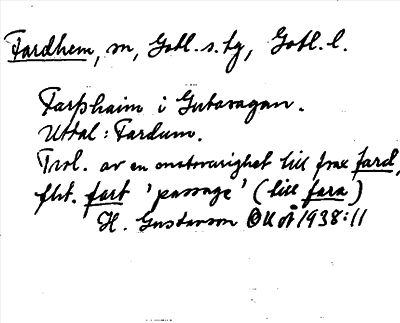 Fardhem, sn, Gotl. s. hg, Gotl. l.
Farþhaim i Gutasagan.
Uttal: Fardum.
Trol. av en motsvarighet till fsax fard,
flt. fart 'passage' (till fara)
H. Gustavson OUÅ 1938:11